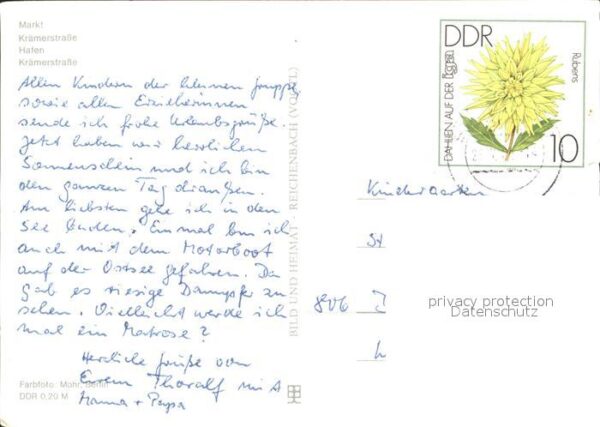 Markt
Krämerstraße
Hafen
Krämerstraße
Allen Kindern der kleinen Gruppe,
sowie allen Erzieherinnen
sende ich frohe Urlaubsgrüße.
Jetzt haben wir herrlichen
Sonnenschein und ich bin
den ganzen Tag draußen.
Am liebsten gehe ich in den
See baden. Einmal bin ich
auch mit dem Motorboot
auf der Ostsee gefahren. Da
gab es riesige Dampfer zu
sehen. Vielleicht werde ich
mal ein Matrose?
Herzliche Grüße von
Eurem Thoralf mit
Mama + Papa
Farbfoto: Mohr, Berlin
DDR 0,20 M
BILD UND HEIMAT REICHENBACH (VOGTL)
DDR
DAHLIEN AUF DER
Rubens
10
Kindergarten
St
806
privacy protection
Datenschutz